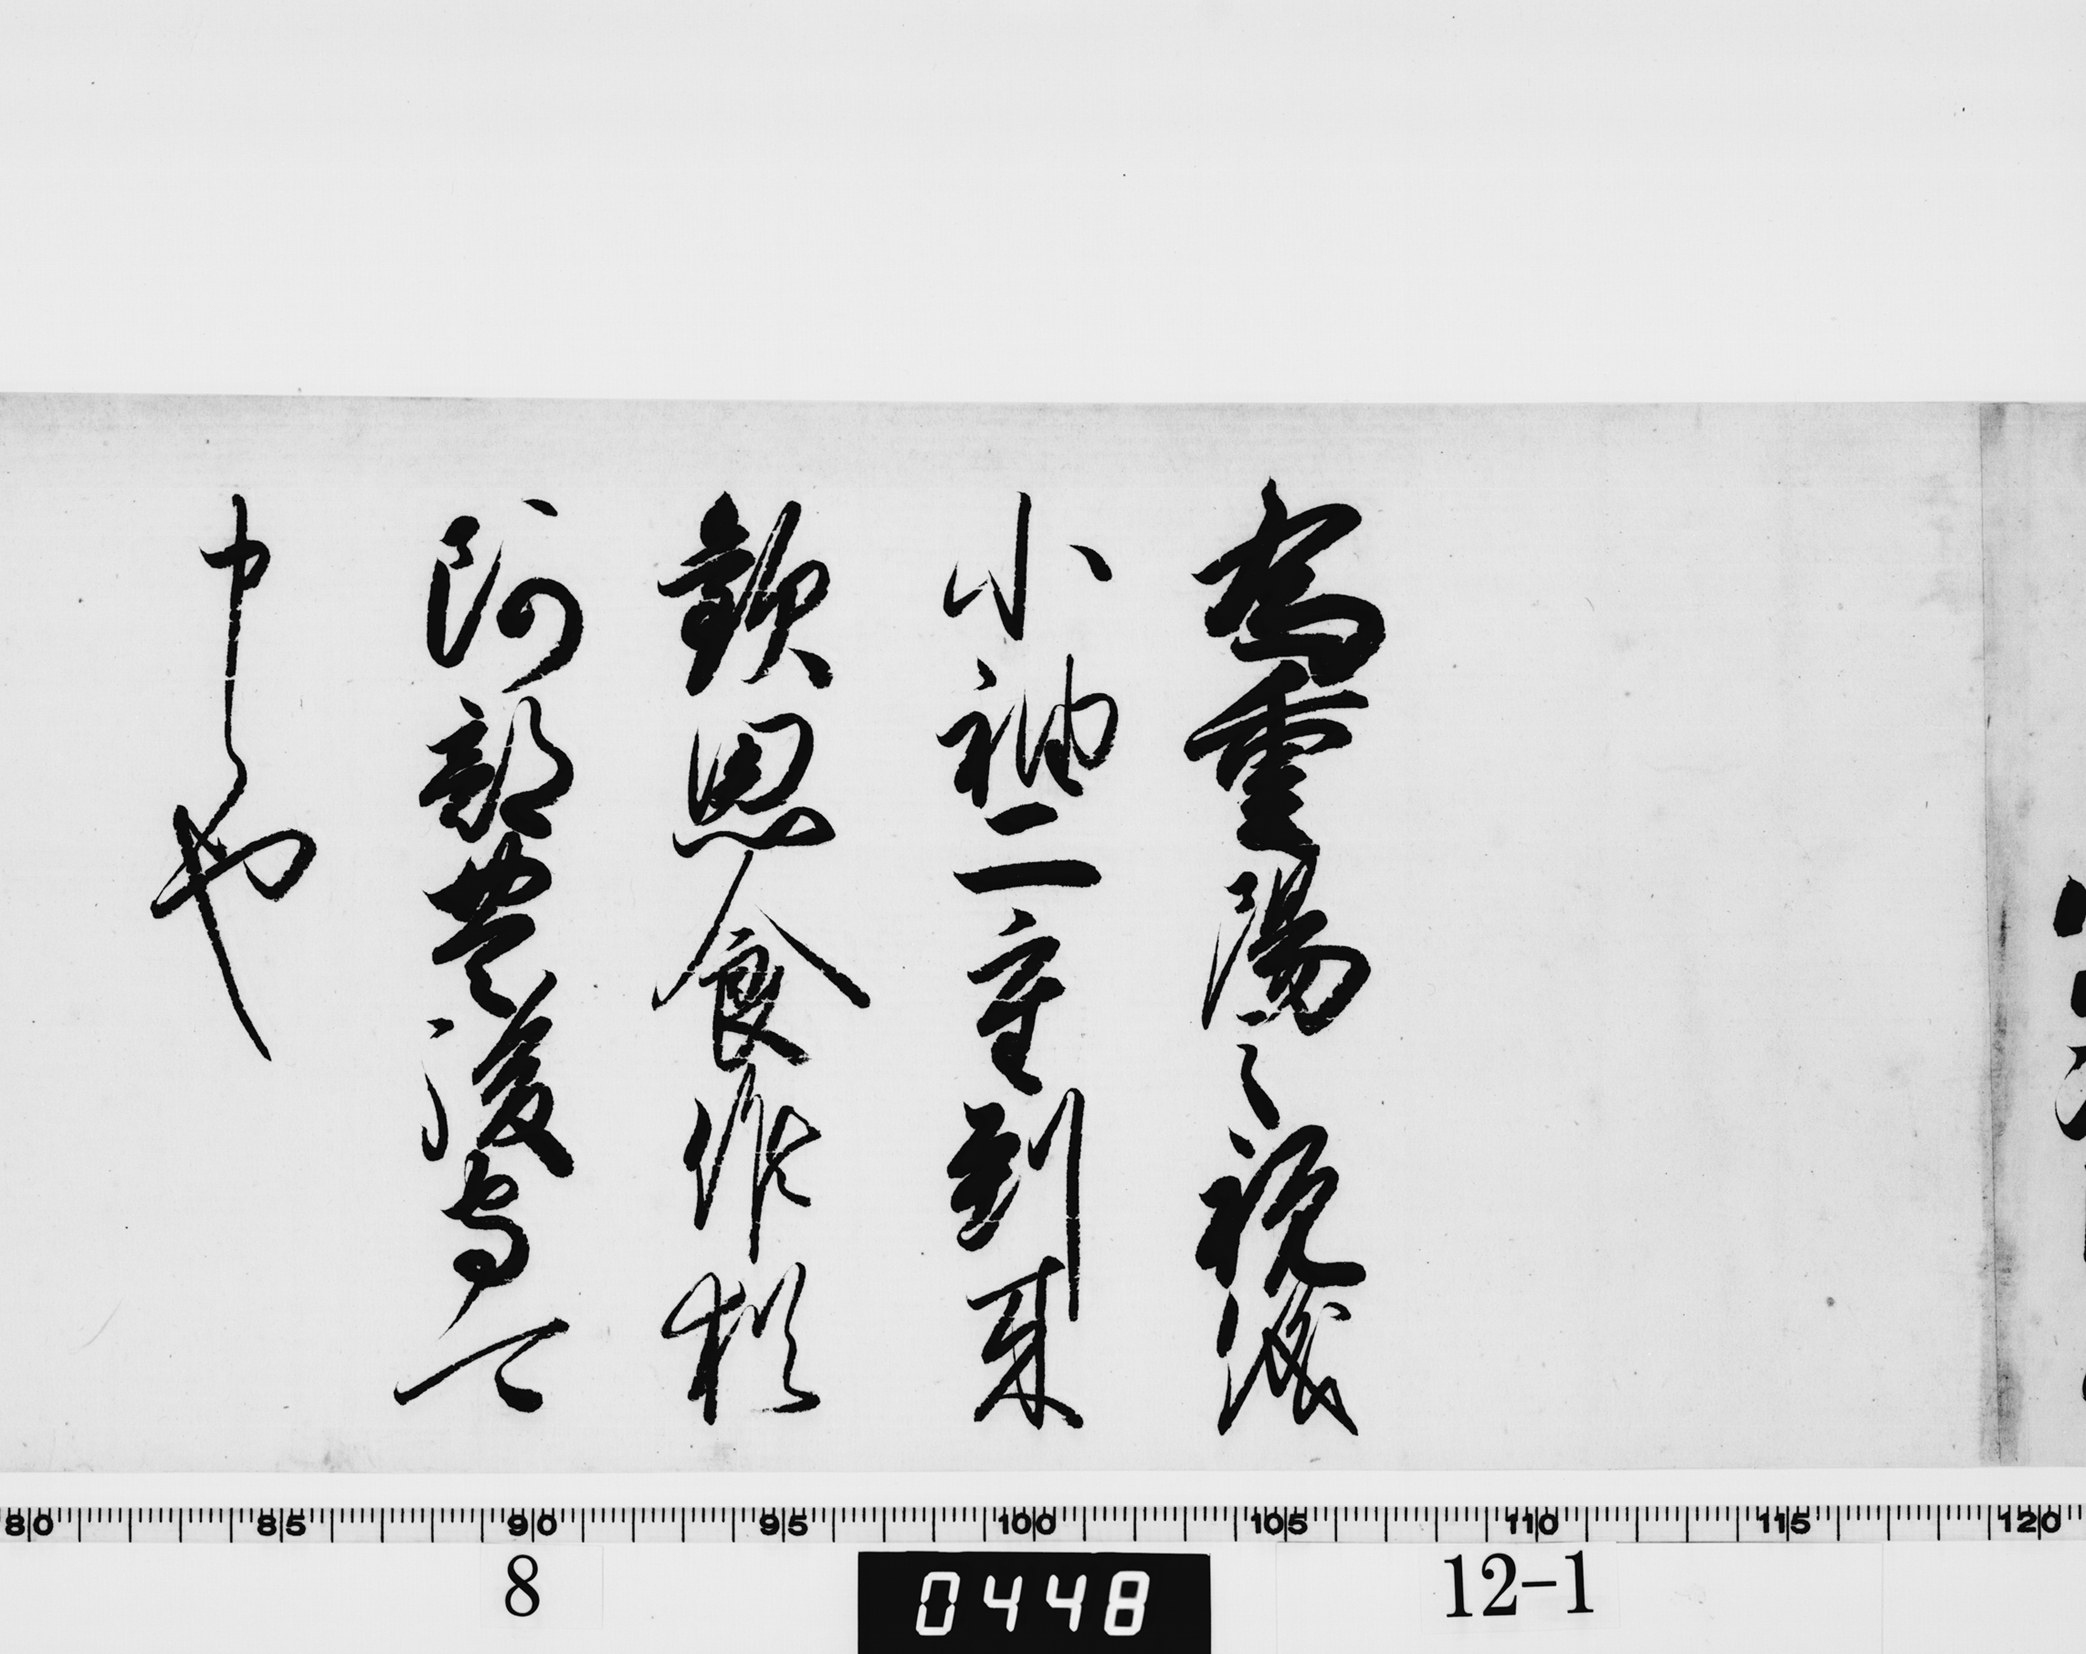 為重陽之祝儀
小袖二重到来
歓思食候猶
阿部豊後守可
申候也
80 85 90 95 100 105 110 115 120
8
0448
12-1